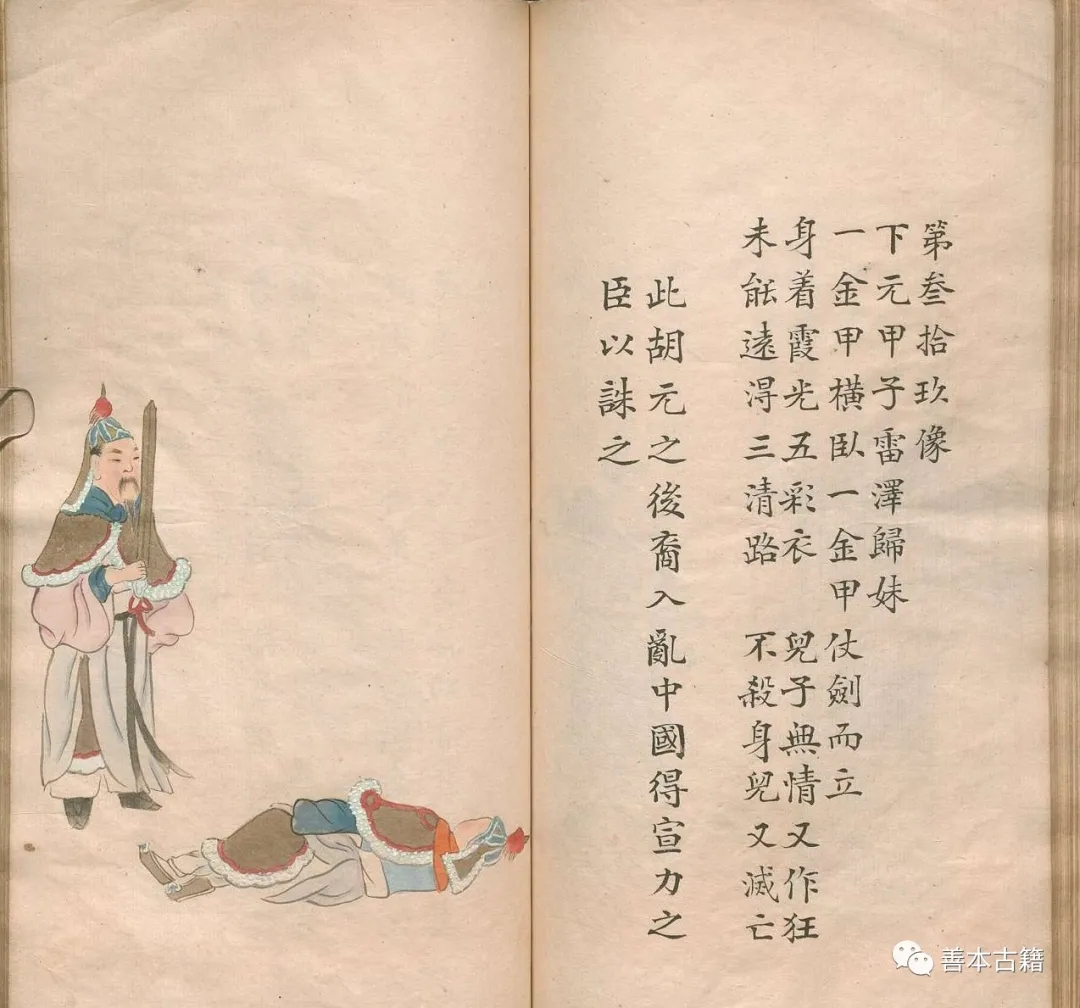 第叁拾玖像
下元甲子雷澤歸妹
一金甲橫臥一金甲仗劍而立
身着霞光五彩衣 兒子無情又作狂
未能遠得三清路 不殺身兒又滅亡
此胡元之後裔入亂中國得宣力之
臣以誅之
善本古籍